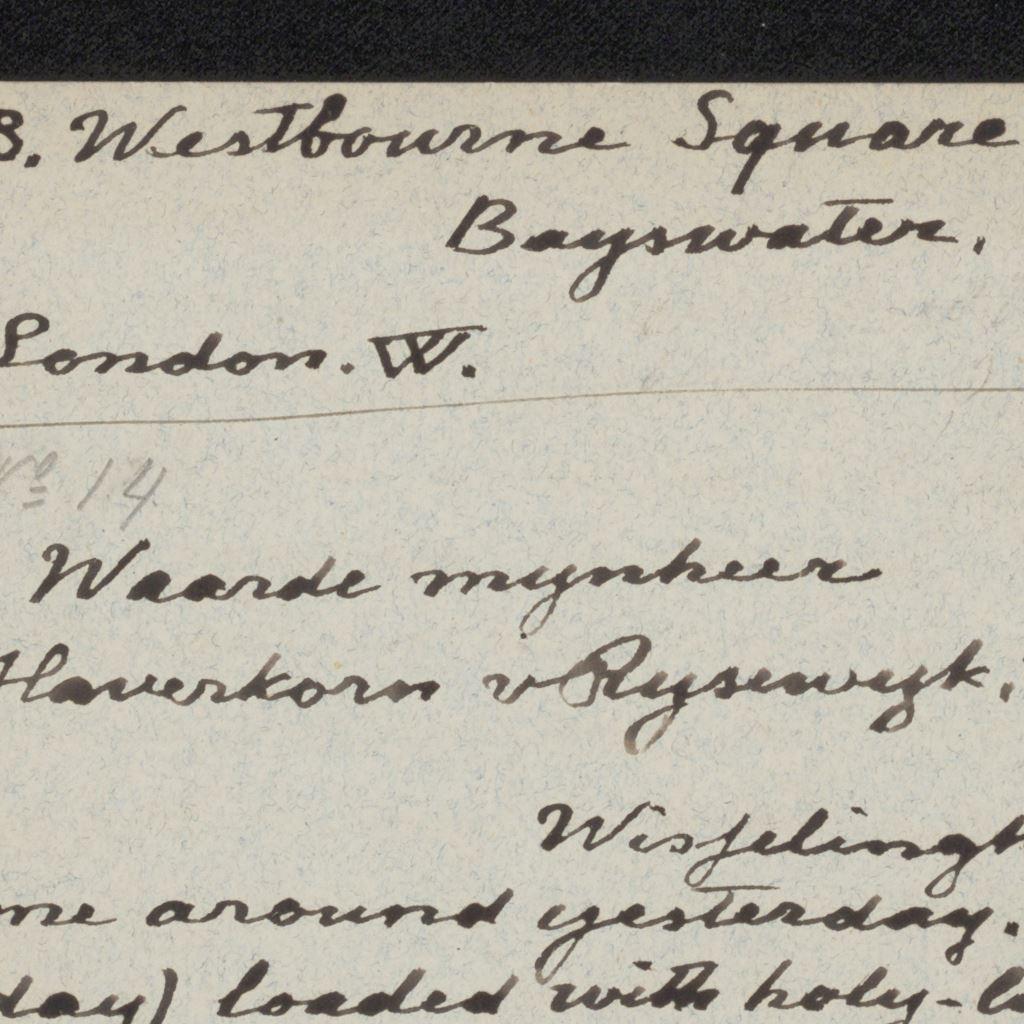 8. Westbourne Square
Bayswater.
London. W.
No 14
Waarde mynheer
Haverkorn v Rysewyk.
Wisselingh
me around yesterday.
day) loaded with holy-